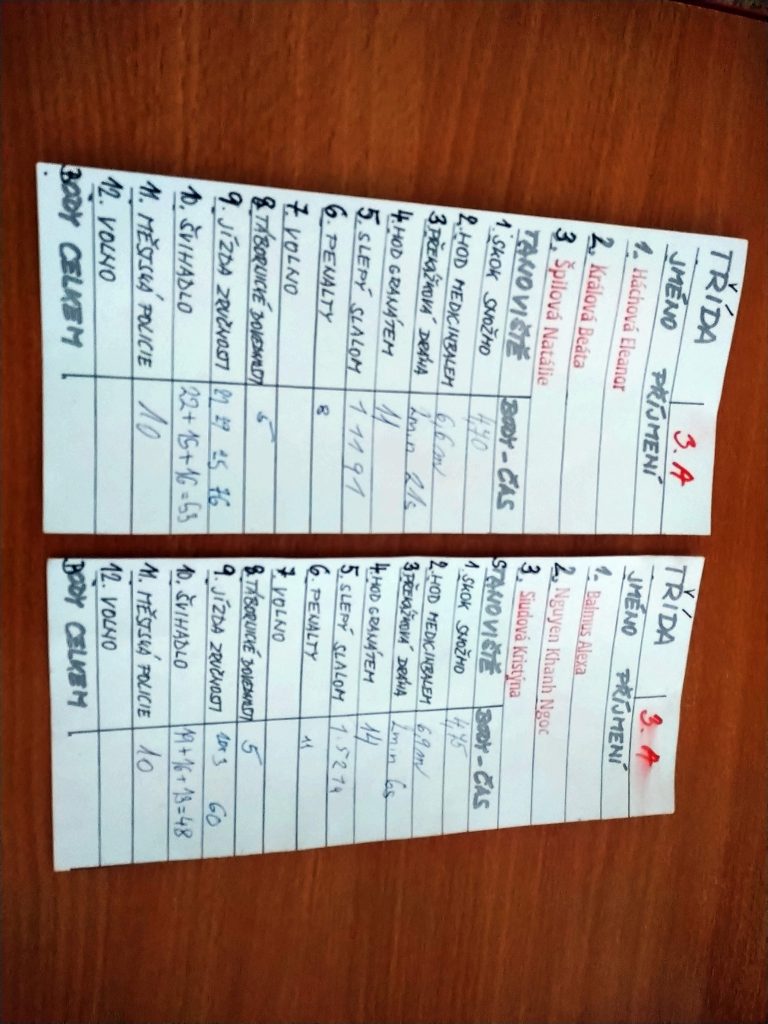 TŘÍDA 3. A
JMÉNO PŘÍJMENÍ
1. Háchová Eleanor
2. Králová Beáta
3. Špilová Natálie
TANOVIŠTĚ BODY - ČAS
1. SKOK SNOŽMO 4,70
2. HOD MEDICINBALEM 6,6m
3. PŘEKÁŽKOVÁ DRÁHA 2min 21s
4. HOD GRANÁTEM 14
5. SLEPÝ SLALOM 1 11 91
6. PENALTY 8
7. VOLNO
8. TÁBORNICKÉ DOVEDNOSTI 5
9. JÍZDA ZRUČNOSTI 25 76
10. ŠVIHADLO 22+15+16=53
11. MĚSTSKÁ POLICIE 10
12. VOLNO
BODY CELKEM
TŘÍDA 3. A
JMÉNO PŘÍJMENÍ
1. Balmus Alexa
2. Nguyen Khanh Ngoc
3. Siudová Kristýna
STANOVIŠTĚ BODY - ČAS
1. SKOK SNOŽMO 4,75
2. HOD MEDICINBALEM 6,9m
3. PŘEKÁŽKOVÁ DRÁHA 2min 6s
4. HOD GRANÁTEM 14
5. SLEPÝ SLALOM 1.52 14
6. PENALTY 11
7. VOLNO
8. TÁBORNICKÉ DOVEDNOSTI 5
9. JÍZDA ZRUČNOSTI 60
10. ŠVIHADLO 19+16+13=48
11. MĚSTSKÁ POLICIE 10
12. VOLNO
BODY CELKEM